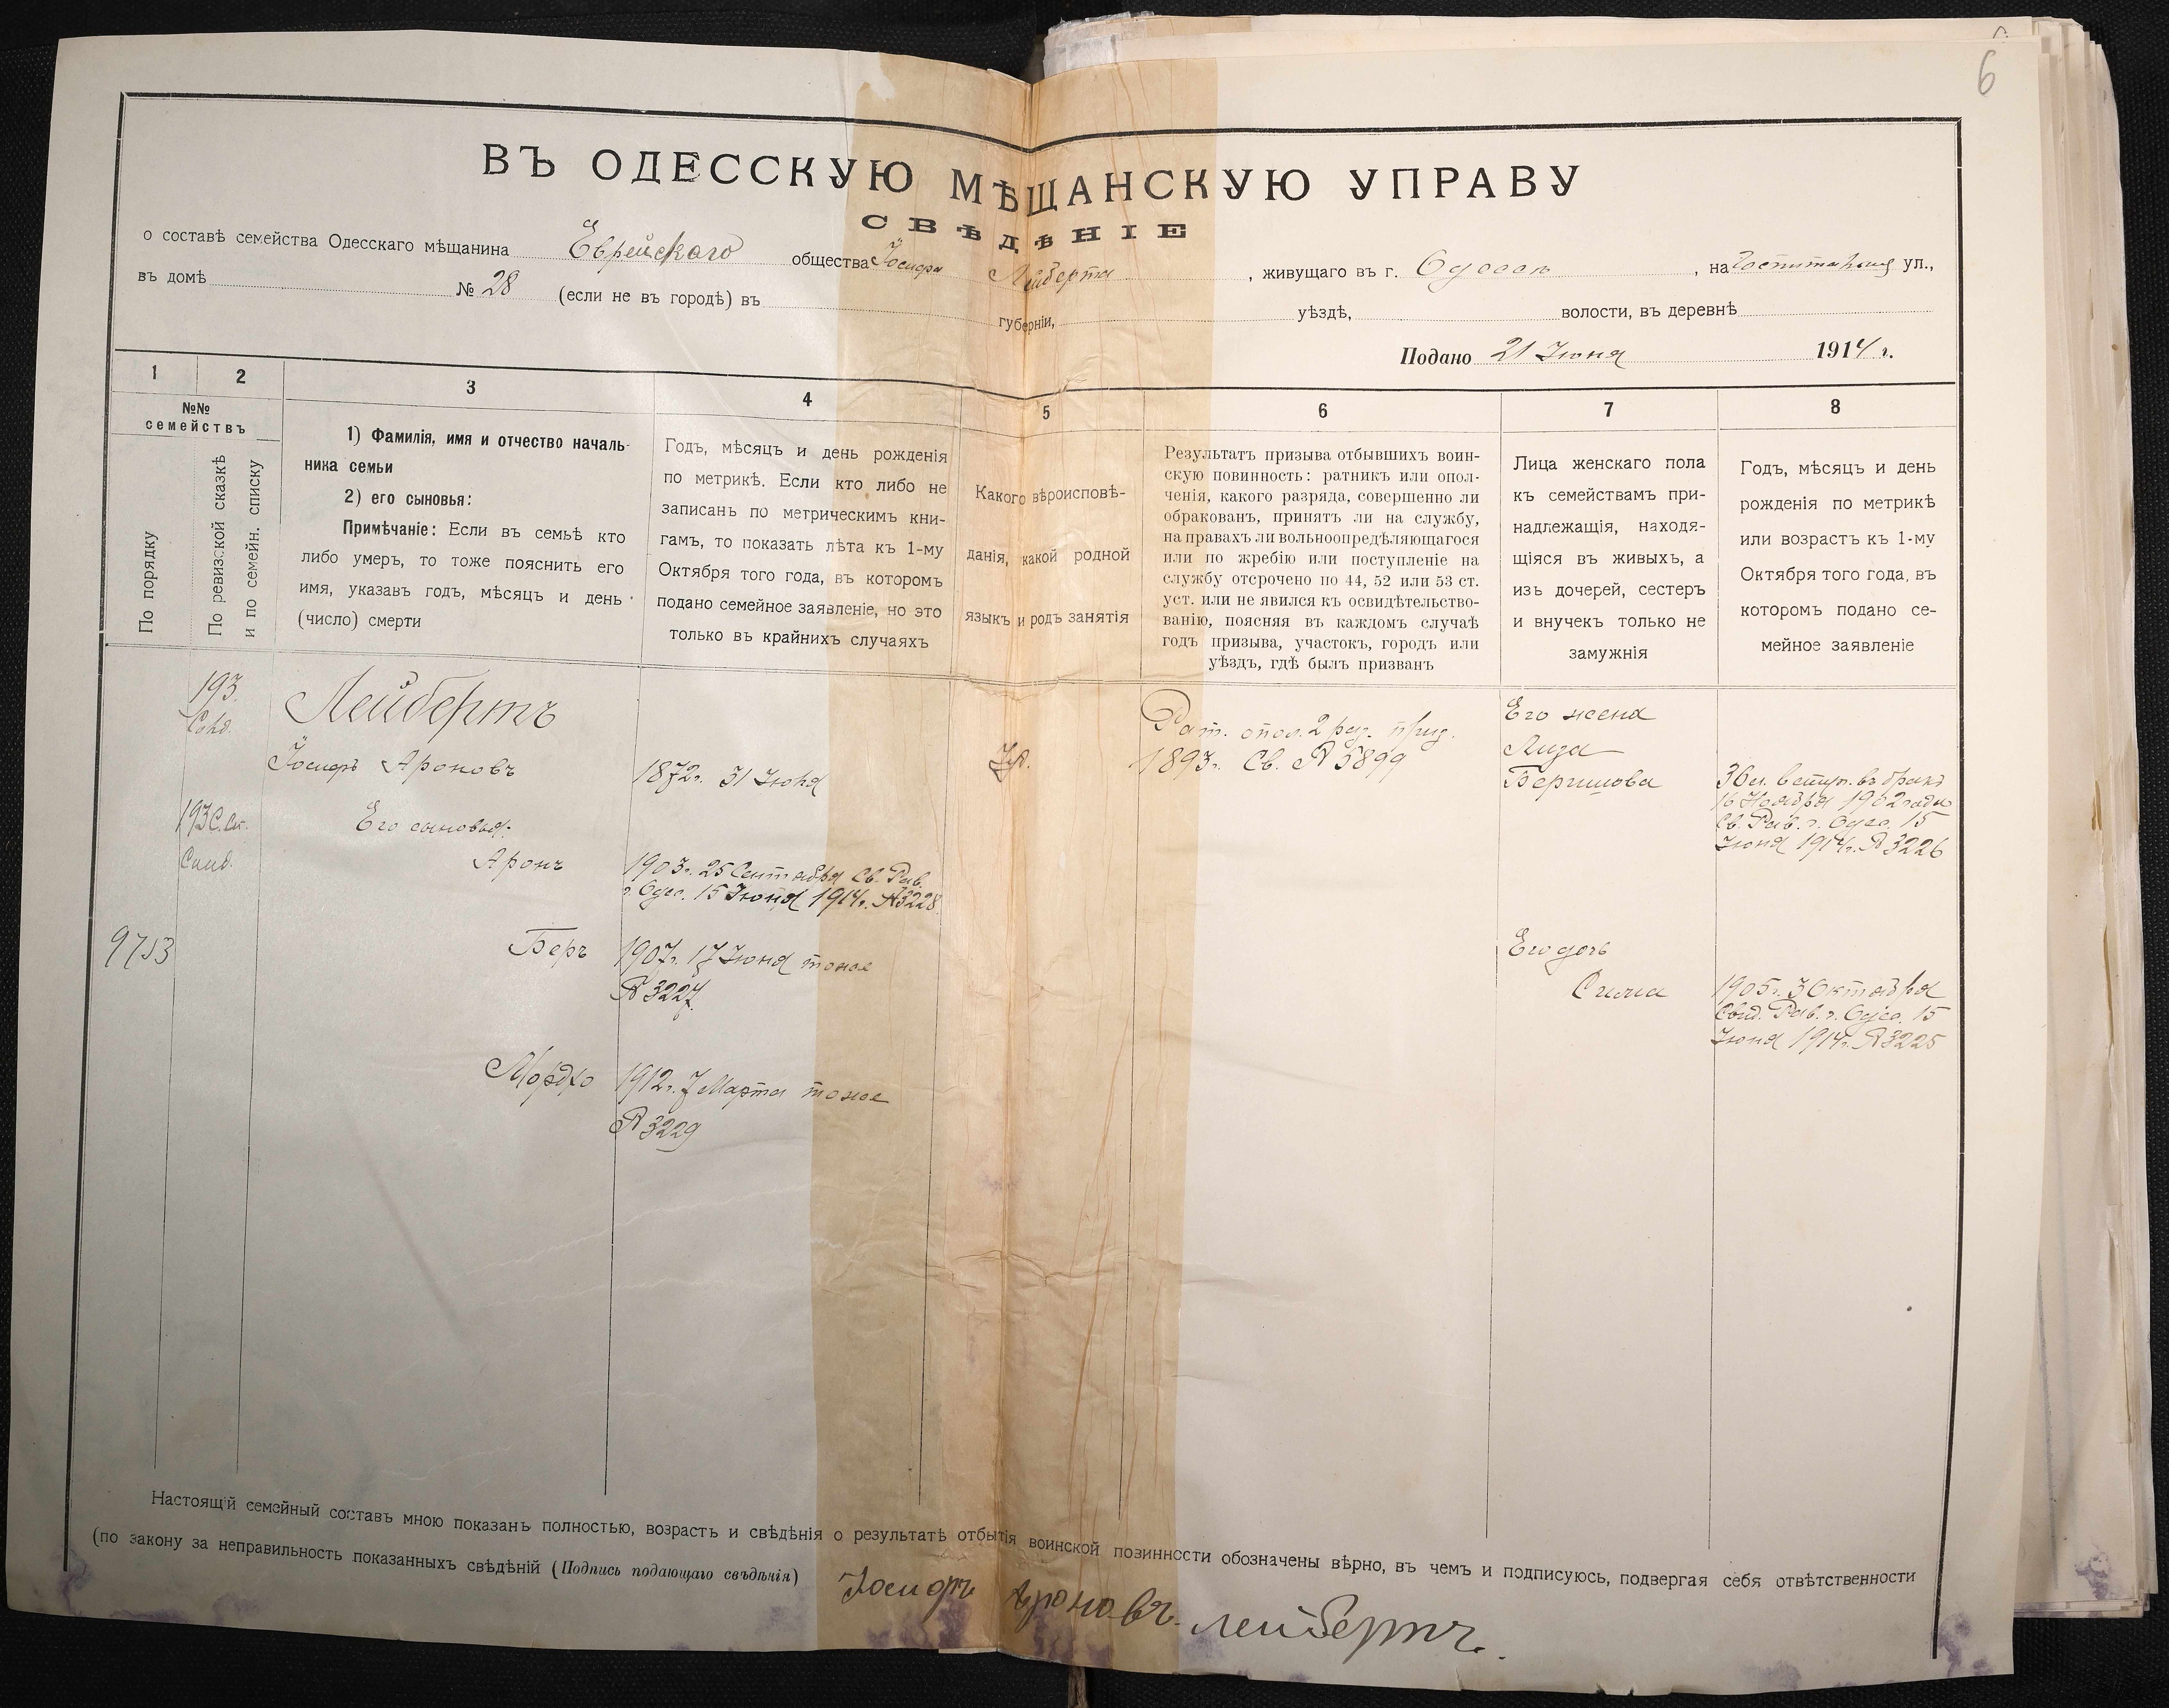 6
ВЪ ОДЕССКУЮ МѢЩАНСКУЮ УПРАВУ
СВѢДѢНІЕ
о составѣ семейства Одесскаго мѣщанина Еврейскаго общества Іосифа Лейберта, живущаго въ г. Одессѣ, на ул.,
въ домѣ № 28 (если не въ городѣ) въ губерніи, уѣздѣ, волости, въ деревнѣ
Подано 21 Іюня 1914 г.
1 2 3 4 5 6 7 8
№№
семействъ
По порядку
По ревизской сказкѣ
и по семейн. списку
1) Фамилія, имя и отчество началь-
ника семьи
2) его сыновья:
Примѣчаніе: Если въ семьѣ кто
либо умеръ, то тоже пояснить его
имя, указавъ годъ, мѣсяцъ и день
(число) смерти
Годъ, мѣсяцъ и день рожденія
по метрикѣ. Если кто либо не
записанъ по метрическимъ кни-
гамъ, то показать лѣта къ 1-му
Октября того года, въ которомъ
подано семейное заявленіе, но это
только въ крайнихъ случаяхъ
Какого вѣроисповѣ-
данія, какой родной
языкъ и родъ занятія
Результатъ призыва отбывшихъ воин-
скую повинность: ратникъ или опол-
ченія, какого разряда, совершенно ли
обракованъ, принятъ ли на службу,
на правахъ ли вольноопредѣляющагося
или по жребію или поступленіе на
службу отсрочено по 44, 52 или 53 ст.
уст. или не явился къ освидѣтельство-
ванію, поясняя въ каждомъ случаѣ
годъ призыва, участокъ, городъ или
уѣздъ, гдѣ былъ призванъ
Лица женскаго пола
къ семействамъ при-
надлежащія, находя-
щіяся въ живыхъ, а
изъ дочерей, сестеръ
и внучекъ только не
замужнія
Годъ, мѣсяцъ и день
рожденія по метрикѣ
или возрастъ къ 1-му
Октября того года, въ
которомъ подано се-
мейное заявленіе
193
Лейбертъ
Іосифъ Ароновъ
1872 г. 31 Іюня
Іуд.
Рат. опол. 2 раз. приз.
1893 г. Св. № 5899
Его жена
Лиза
Беришова
вступ. въ бракъ
16 Ноября 1902 года
Св. Рав. г. Одес. 15
Іюня 1914 г. № 3226
193
Его сыновья:
Аронъ
1903 г. 25 Сентября Св. Рав.
г. Одес. 15 Іюня 1914 г. № 3228
9713
Беръ
1907 г. 17 Іюня тоже
№ 3227
Его дочь
1905 г. 3 Октября
Свид. Рав. г. Одес. 15
Іюня 1914 г. № 3225
Мордко
1912 г. 7 Марта тоже
№ 3229
Настоящій семейный составъ мною показанъ полностью, возрастъ и свѣдѣнія о результатѣ отбытія воинской повинности обозначены вѣрно, въ чемъ и подписуюсь, подвергая себя отвѣтственности
(по закону за неправильность показанныхъ свѣдѣній (Подпись подающаго свѣдѣнія) Іосифъ Ароновъ Лейбертъ.